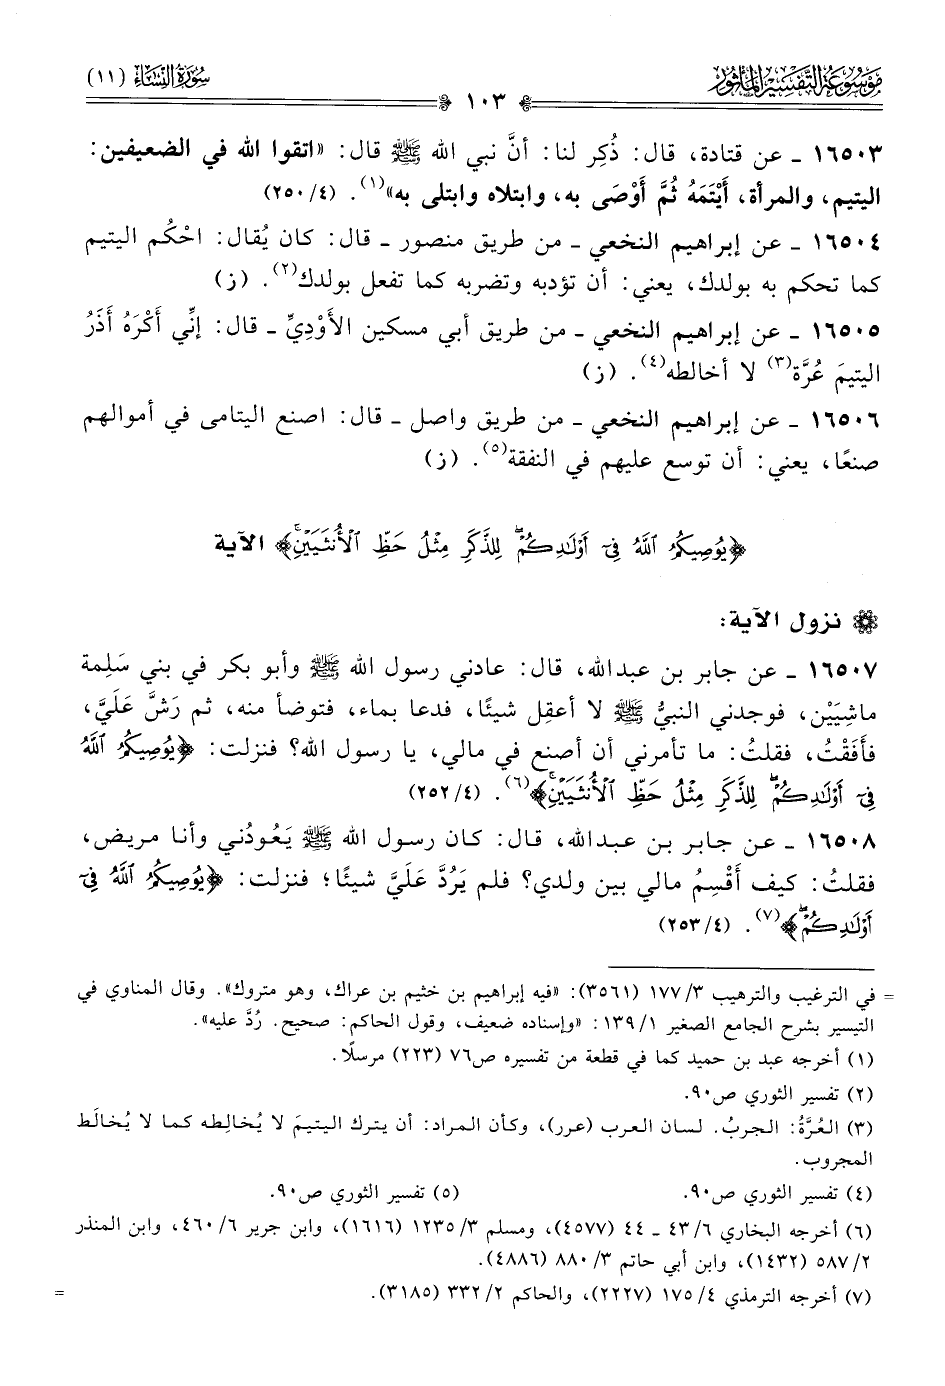 موسوعة التفسير المأثور
١٠٣
سورة النساء (١١)
١٦٥٠٣ ـ عن قتادة، قال: ذُكِر لنا: أنَّ نبي الله ﷺ قال: «اتقوا الله في الضعيفين:
اليتيم، والمرأة، أَيْتَمَهُ ثُمَّ أَوْصَى به، وابتلاه وابتلى به»(١). (٤/٢٥٠)
١٦٥٠٤ ـ عن إبراهيم النخعي ـ من طريق منصور ـ قال: كان يُقال: احْكُم اليتيم
كما تحكم به بولدك، يعني: أن تؤدبه وتضربه كما تفعل بولدك(٢). (ز)
١٦٥٠٥ ـ عن إبراهيم النخعي ـ من طريق أبي مسكين الأَوْدِيِّ ـ قال: إنِّي أَكْرَهُ أَذَرُ
اليتيمَ عُرَّة(٣) لا أخالطه(٤). (ز)
١٦٥٠٦ ـ عن إبراهيم النخعي ـ من طريق واصل ـ قال: اصنع اليتامى في أموالهم
صنعًا، يعني: أن توسع عليهم في النفقة(٥). (ز)
﴿يُوصِيكُمُ ٱللَّهُ فِىٓ أَوْلَٰدِكُمْۖ لِلذَّكَرِ مِثْلُ حَظِّ ٱلْأُنثَيَيْنِۚ﴾ الآية
نزول الآية:
١٦٥٠٧ ـ عن جابر بن عبدالله، قال: عادني رسول الله ﷺ وأبو بكر في بني سَلِمة
ماشِيَيْن، فوجدني النبيُّ ﷺ لا أعقِل شيئًا، فدعا بماء، فتوضأ منه، ثم رَشَّ عَلَيَّ،
فأَفَقْتُ، فقلتُ: ما تأمرني أن أصنع في مالي، يا رسول الله؟ فنزلت: ﴿يُوصِيكُمُ ٱللَّهُ
فِىٓ أَوْلَٰدِكُمْۖ لِلذَّكَرِ مِثْلُ حَظِّ ٱلْأُنثَيَيْنِۚ﴾(٦). (٤/٢٥٢)
١٦٥٠٨ ـ عن جابر بن عبدالله، قال: كان رسول الله ﷺ يَعُودُني وأنا مريض،
فقلتُ: كيف أَقْسِمُ مالي بين ولدي؟ فلم يَرُدَّ عَلَيَّ شيئًا؛ فنزلت: ﴿يُوصِيكُمُ ٱللَّهُ فِىٓ
أَوْلَٰدِكُمْۖ﴾(٧). (٤/٢٥٣)
= في الترغيب والترهيب ٣/١٧٧ (٣٥٦١): «فيه إبراهيم بن خثيم بن عراك، وهو متروك». وقال المناوي في
التيسير بشرح الجامع الصغير ١/١٣٩: «وإسناده ضعيف، وقول الحاكم: صحيح. رُدَّ عليه».
(١) أخرجه عبد بن حميد كما في قطعة من تفسيره ص٧٦ (٢٢٣) مرسلًا.
(٢) تفسير الثوري ص٩٠.
(٣) العُرَّةُ: الجربُ. لسان العرب (عرر)، وكأن المراد: أن يترك اليتيمَ لا يُخالِطه كما لا يُخالَط
المجروب.
(٤) تفسير الثوري ص٩٠. (٥) تفسير الثوري ص٩٠.
(٦) أخرجه البخاري ٦/٤٣ ـ ٤٤ (٤٥٧٧)، ومسلم ٣/١٢٣٥ (١٦١٦)، وابن جرير ٦/٤٦٠، وابن المنذر
٢/٥٨٧ (١٤٣٢)، وابن أبي حاتم ٣/٨٨٠ (٤٨٨٦).
(٧) أخرجه الترمذي ٤/١٧٥ (٢٢٢٧)، والحاكم ٢/٣٣٢ (٣١٨٥). =